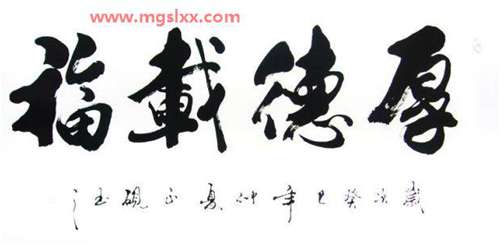 www.mgslxx.com
厚德載福
歲次癸巳年仲夏正硯